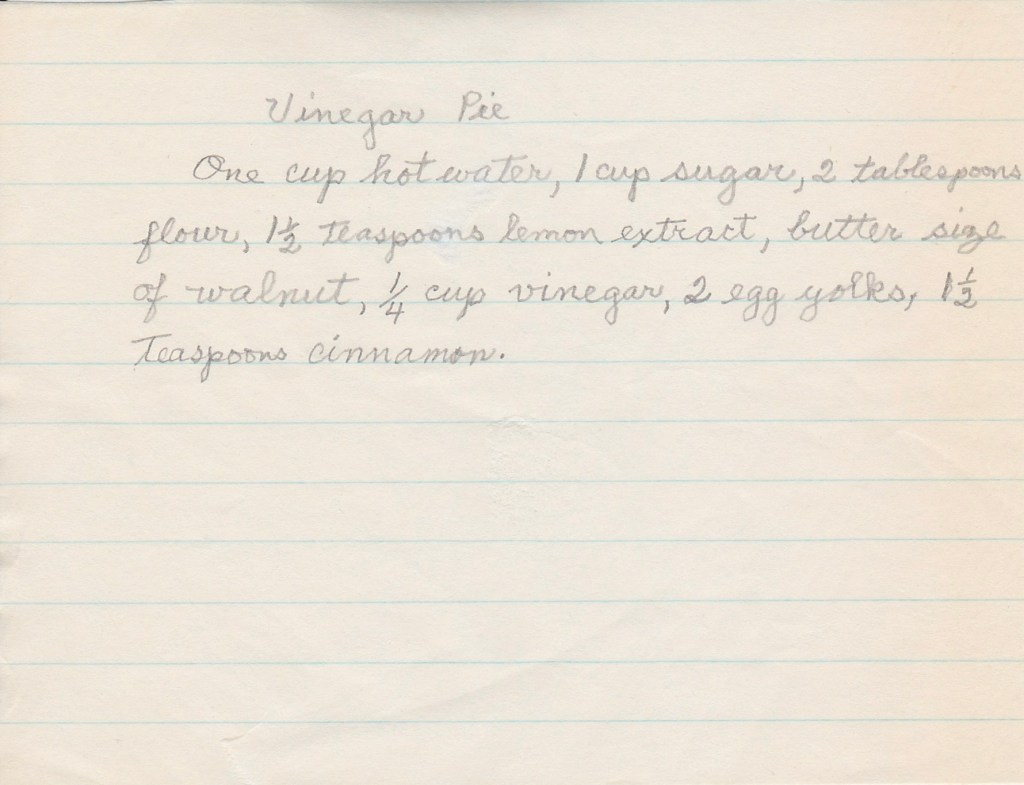 Vinegar Pie
One cup hot water, 1 cup sugar, 2 tablespoons
flour, 1½ teaspoons lemon extract, butter size
of walnut, ¼ cup vinegar, 2 egg yolks, 1½
Teaspoons cinnamon.